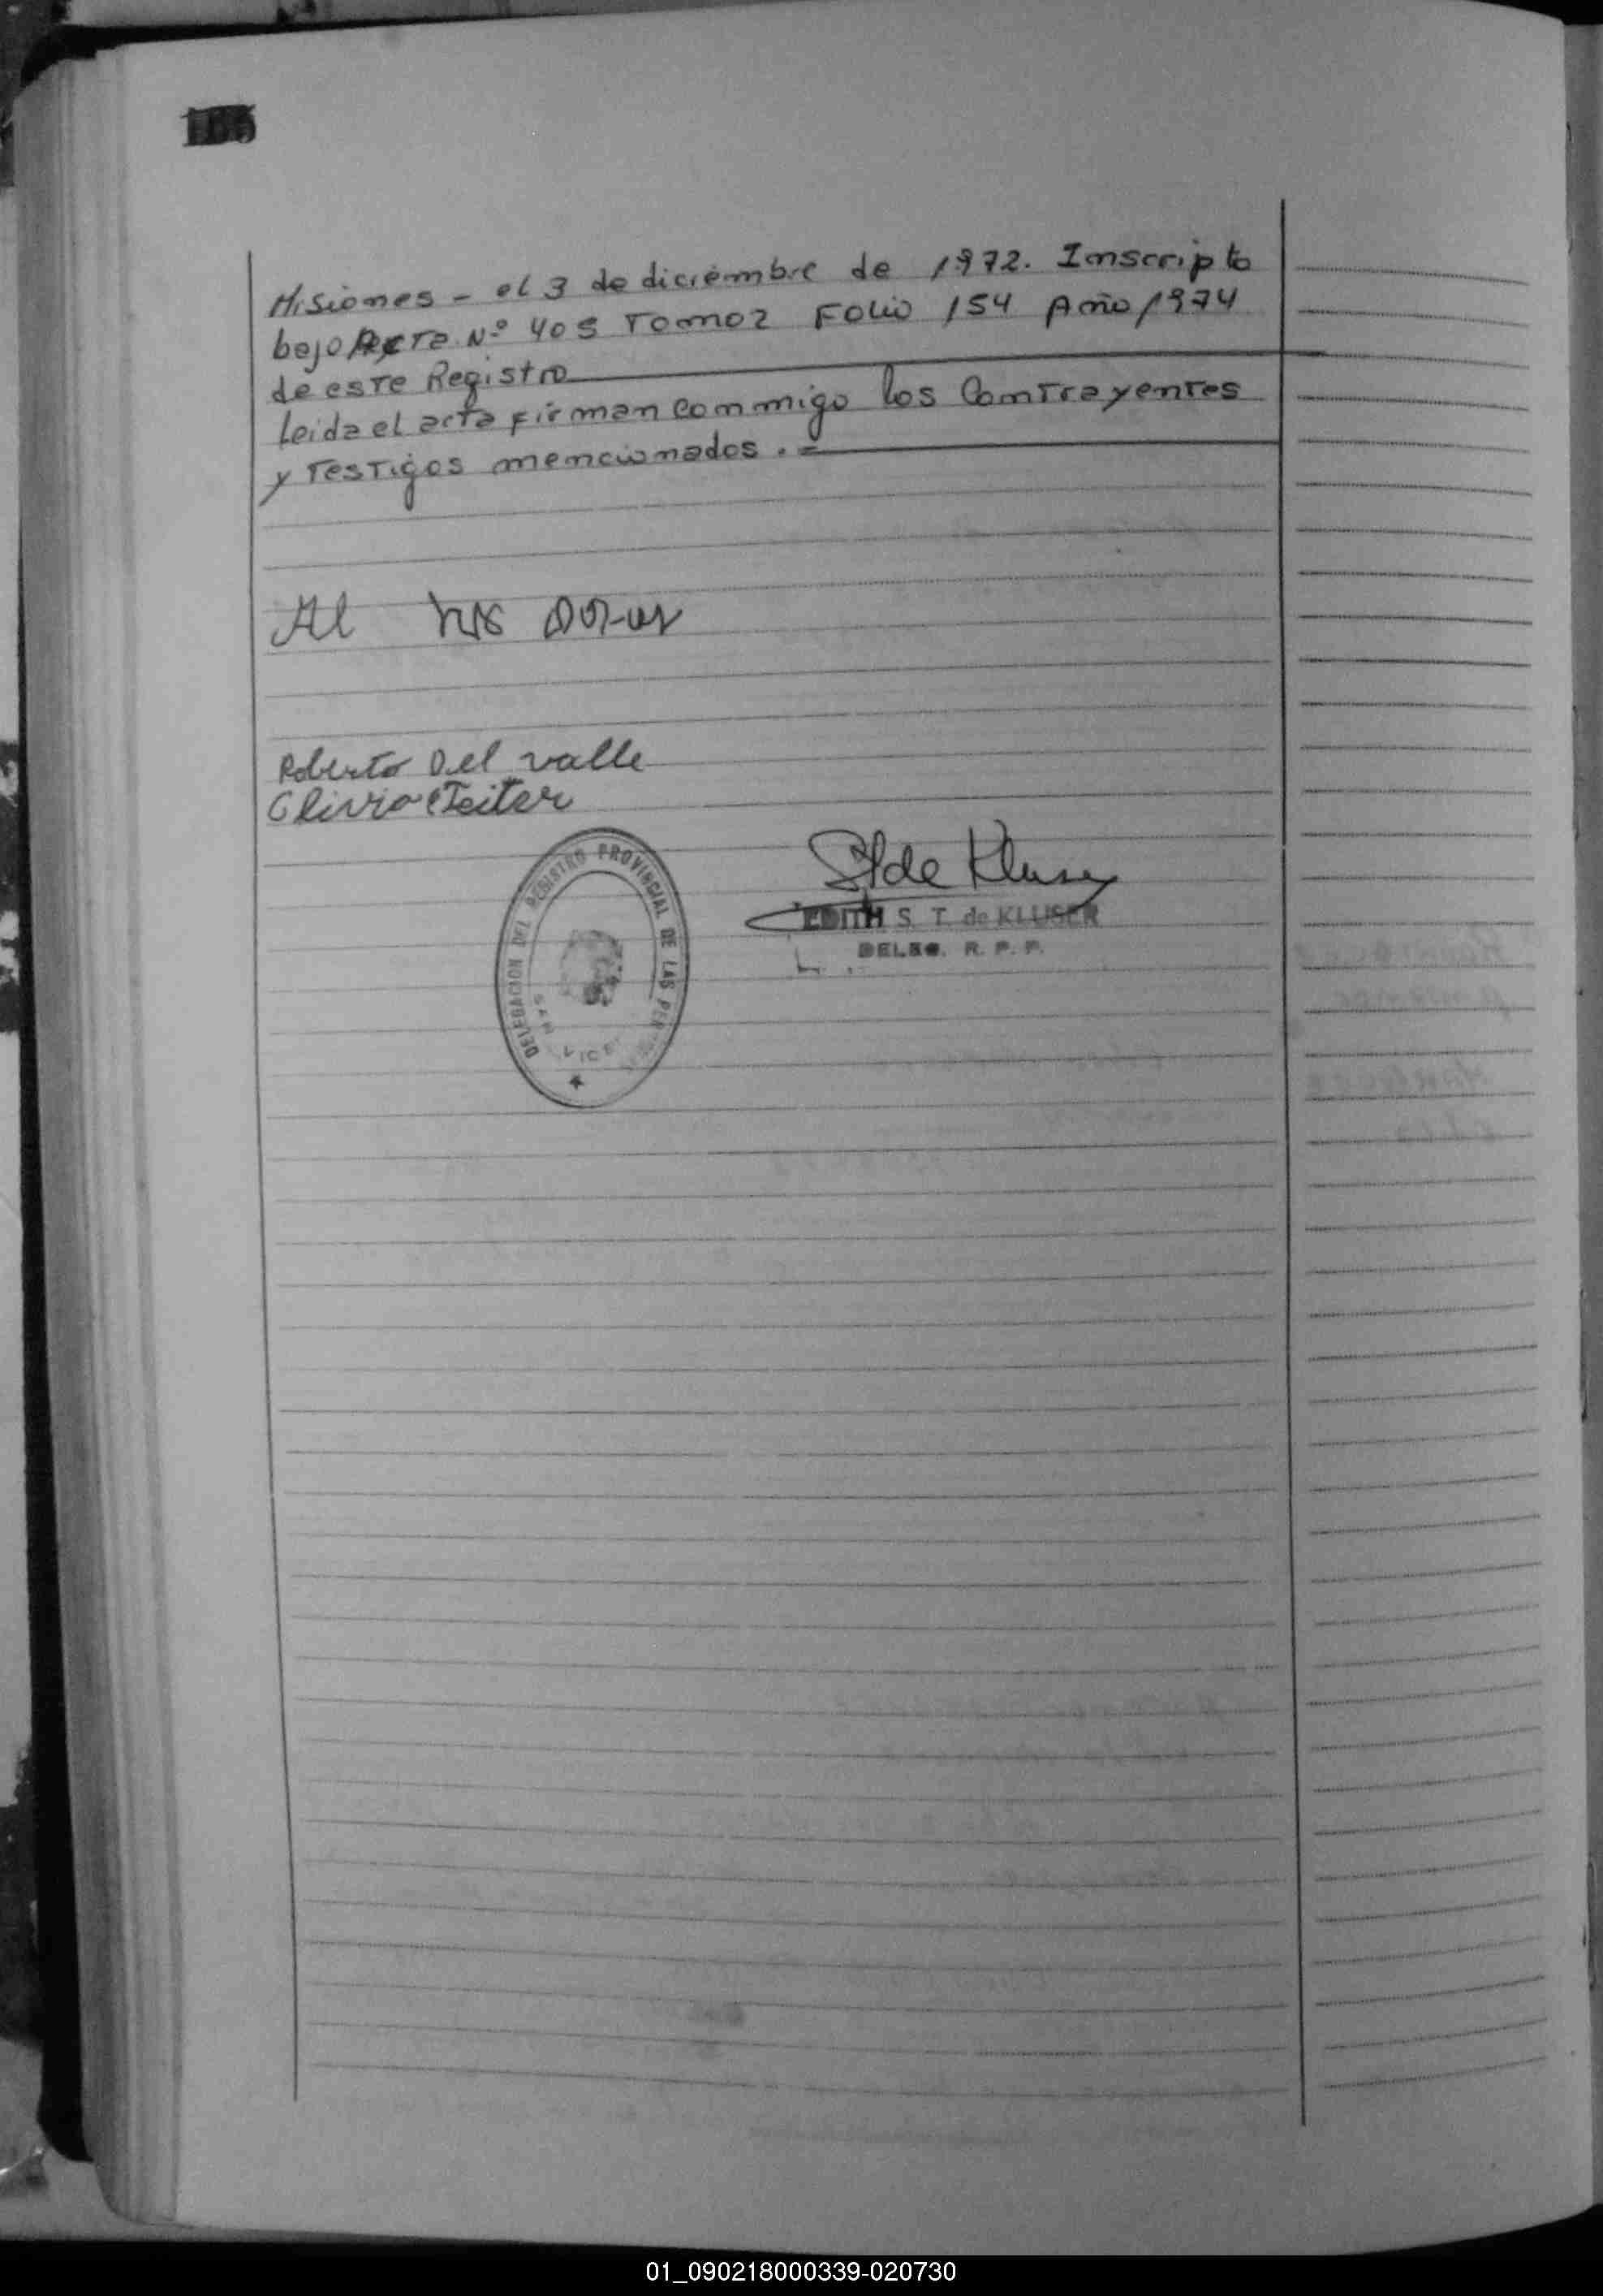 Misiones - el 3 de diciembre de 1972. Inscripto
bajo Acta Nº 405 Tomo 2 Folio 154 Año 1974
de este Registro
leida el acta firman conmigo los Contrayentes
y Testigos mencionados . =
Roberto Del valle
DELEGACION DEL REGISTRO PROVINCIAL DE LAS
SAN VICE
EDITH S. T. de KLUSER
DELEG. R. P. P.
01_090218000339-020730